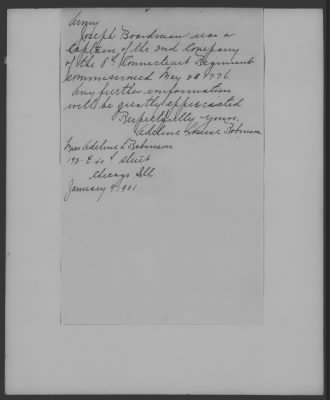 Army
Joseph Boardman was a
Captain of the 2nd Company
of the 8th Connecticut Regiment
commissioned May 1776
Any further information
will be greatly appreciated
Respectfully yours,
Adeline Louise Robinson
Mrs Adeline L Robinson
E 40th Street
Chicago Ill
January